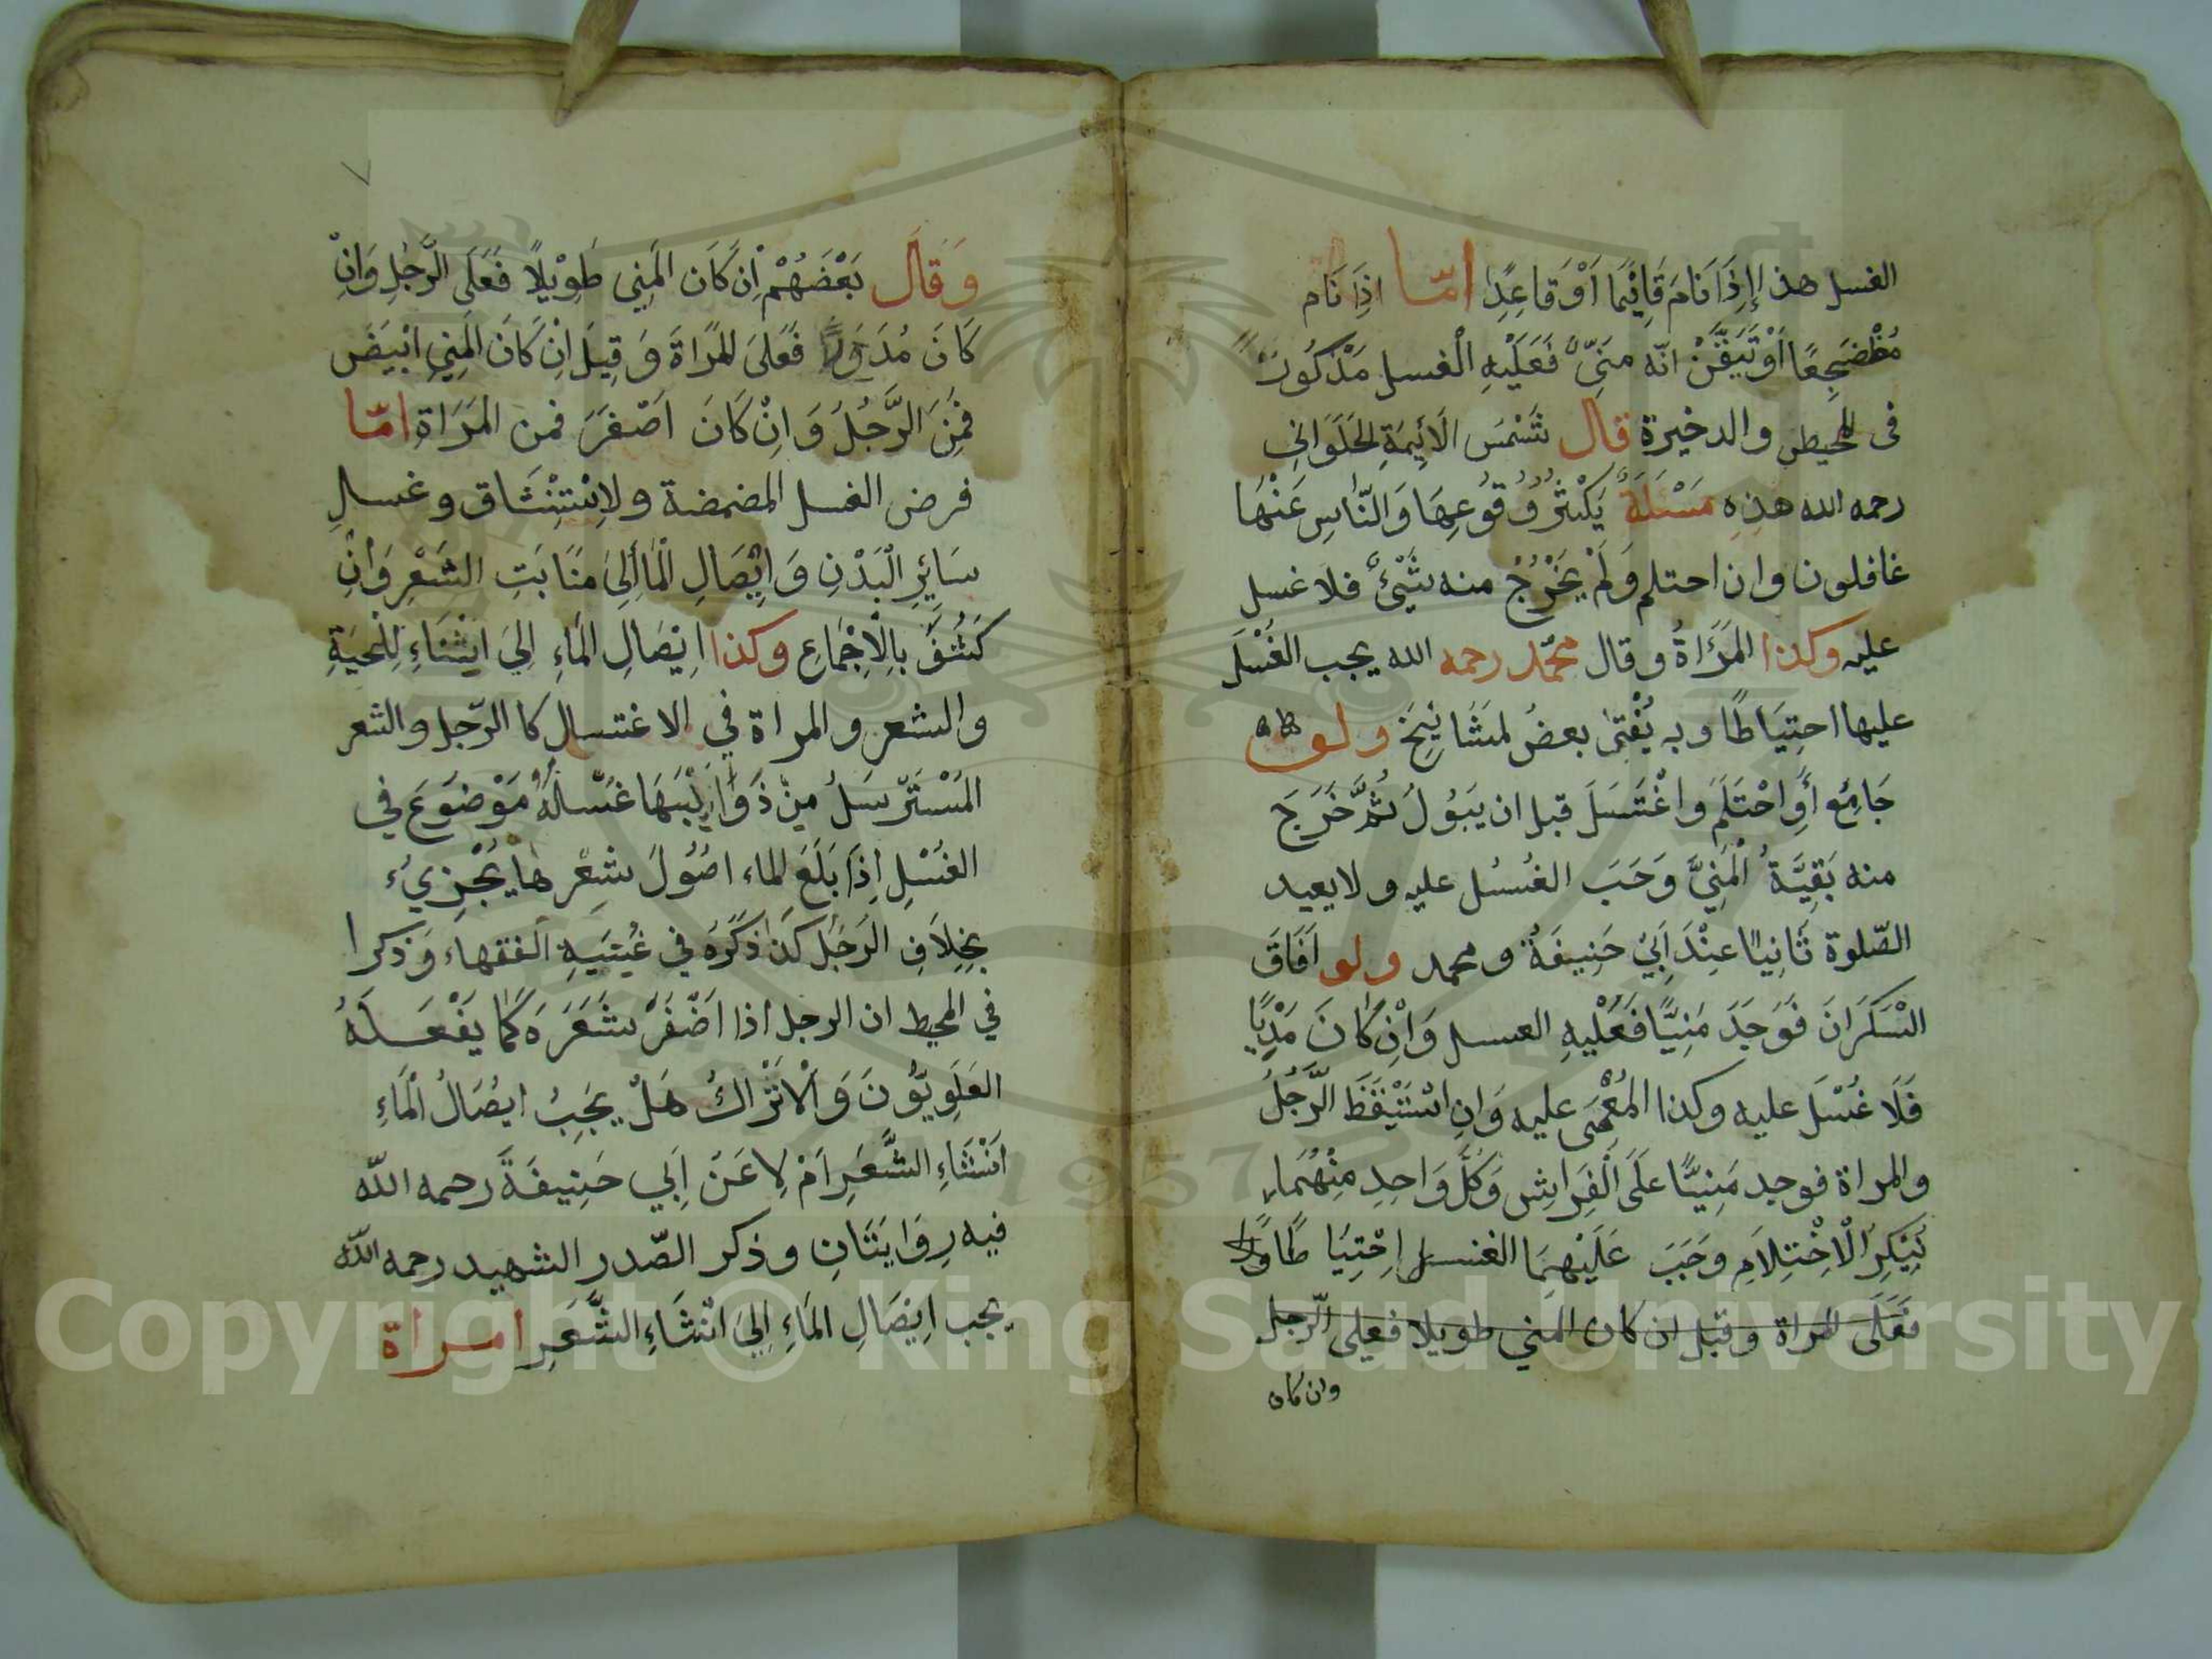 الغسل هذا إِذَا نَامَ قَائِمًا اَوْ قَاعِدًا امّا اِذَا نَام
مُظْضَجِعًا اَوْ تَيَقَّنُ انّه مَنِىٌّ فَعَلَيْهِ الْغسل مَذْكُورٌ
فى المحيط والدخيرة قال شَمْسَ الَأئِيمَةِ الحَلَوَانِي
رحمه الله هٰذِهِ مَسْئَلَةٌ يَكْثُرُ وُقُوعِهَا وَالنَّاسِ عَنْهَا
غافلون وان احتلم وَلَمْ يَخْرُجُ منه شَيْئٌ فلا غسل
عليه وكذا المَرْاَةُ وقال محمّد رحمه الله يجب الغُسْلَ
عليها احتِيَاطًا وبه يُفْتىٰ بعضُ لمَشَائِيخَ ولو
جَامَعِ أَوِاحْتَلَمَ واغْتَسَلَ قبل ان يَبُولُ ثُمَّ خَرَجَ
منه بَقِيَّةُ الْمَنِيَّ وَجَبَ الغُسُل عليه ولا يعيد
الصّلوة ثَانِيًا عِنْدَ اَبِيْ حَنِيفَةَ ومحمد ولو اَفَاقَ
السَّكَرَانَ فَوَجَدَ مَنِيًّا فَعَلْيهِ الغسل وَاِنْ كَانَ مَذْيًا
فَلَا غُسْلَ عليه وكذا المُغْمىَ عليه وَاِن اسْتَيْقَظَ الرَّجُلُ
والمراة فوجد مَنِيًّا عَلَى الْفِرَاشِ وَكُلَّ وَاحِدِ مِنْهُمَا
يُنْكِرُ الْاِحْتِلَامِ وَجَبَ عَلَيْهِمَا الغسل اِحْتِيَاطًا
فَعَلَى المَراة وقيل ان كان المني طويلا فعلى الرّجل
وان كان
وَقَال بَعْضَهُمْ اِنْ كَانَ المَنِي طَوِيْلًا فَعَلَى الرَّجُلِ وَاِنْ
كَانَ مُدَوَّرًا فَعَلىَ المَرْاةَ وَقِيلَ اِنْ كَانَ المَنِي اَبْيَضَ
فَمِنَ الرَّجُلُ وَاِنْ كَانَ اَصْفَرَ فمن المَرَاةِ امّا
فرض الغسل المضمضة ولاِسْتِنْشَاق وغسل
سَائِرِ الْبَدْنِ وَاِيْصَالِ الْمَا اِلَى مَنَابَتِ الشَعْرِ وَاْنْ
كَثُفَ بِالْاِجْمَاعِ وكذا اِيْصَالِ المَاءِ اِلىَ اَثْنَاءِ اللِحْيَةِ
والشعر والمراة في الاغتسال كا الرّجل والشعر
المُسْتَرْسَلُ مِنْ ذَوَايِبَهَا غَسْلُهُ مَوْضوَعَ في
الغُسْلِ اِذَا بَلَغَ لماء اصُوُلَ شعْرِها يُجْزِيُ
بخِلاَفِ الرَجُل كَذَا ذَكَرَه في غُنْيَةِ الفقهاء وَذكرا
في المحيط ان الرجل اذا اَضْفَرَ شَعَرَهَ كَمَا يَفْعَلَهُ
العَلَوِيُّونَ وَالْاَتْرَاكُ هَلْ يَجِبُ ايْصَالُ الْمَاءِ
اَثْنَاءِ الشَّعَرِ اَمْ لَا عَنْ اَبِي حَنِيفَةَ رحمه الله
فيه رِوَايَتَانِ وذكر الصّدر الشهيد رحمه الله
يجب اِيْصَالِ المَاءِ اِلىَ اثْنَاءِ الشَّعَرِ امراة
Copyright © King Saud University
1957